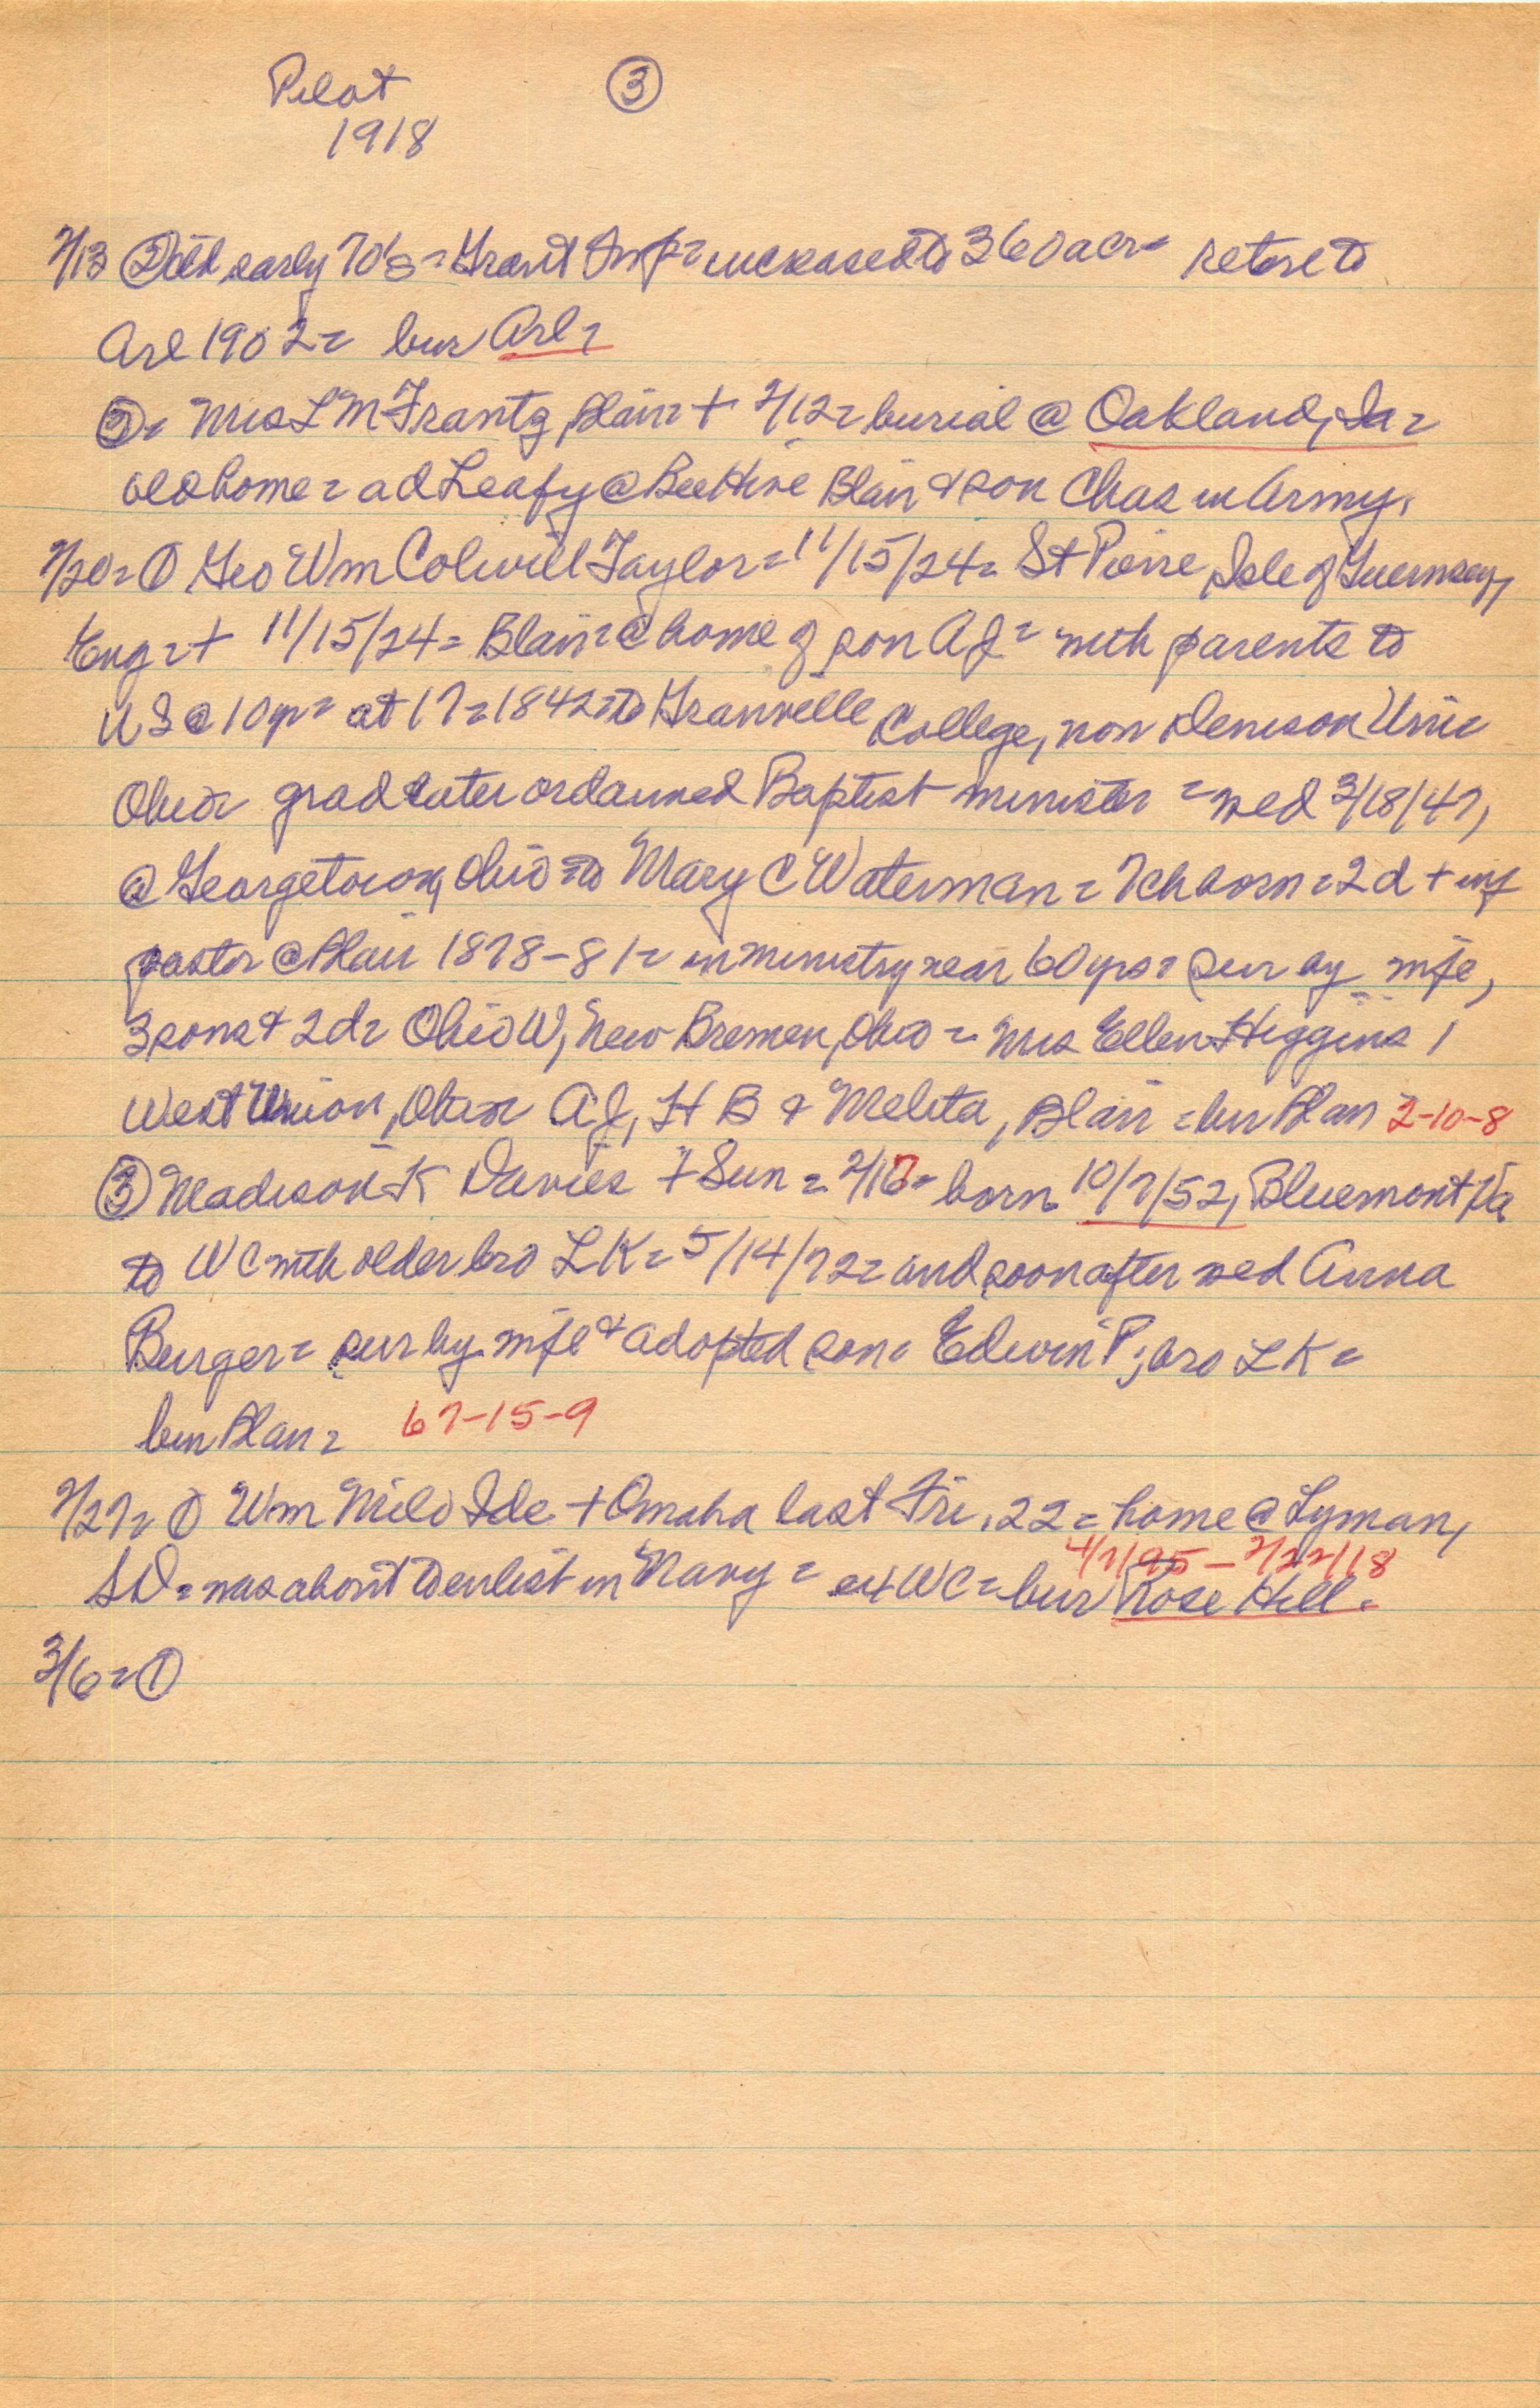 Pilot ③
1918
2/13 ② Neb early 70's = Grant Twp = increased to 360 acr = retire to
Arl 1902 = bur Arl =
⑤ = Mrs L M Frantz, Blair = + 2/12 = burial @ Oakland, Ia =
old home = ad Leafy @ Bee Hive Blair & son Chas in Army.
2/20 = ① Geo Wm Colwill Taylor = 11/15/24 = St Pierre, Isle of Guernsey,
Eng = + 11/15/24 = Blair = @ home of son A J = with parents to
US @ 10 yr = at 17 = 1842 = to Granville College, now Denison Univ
Ohio = grad later ordained Baptist minister = wed 3/18/47,
@ Georgetown, Ohio = to Mary C Waterman = 7 ch born = 2 d + inf
pastor @ Blair 1878-81 = in ministry near 60 yrs = sur by wife,
3 sons & 2 d = Ohio W, New Bremen, Ohio = Mrs Ellen Higgins,
West Union, Ohio = A J, H B & Melita, Blair = bur Blair 2-10-8
③ Madison K Davies + Sun = 2/17 = born 10/7/52, Bluemont Va
to WC with older bro L K = 5/14/72 = and soon after wed Anna
Burger = sur by wife & adopted son = Edwin P; bro L K =
bur Blair = 67-15-9
2/27 = ① Wm Milo Ide + Omaha last Fri, 22 = home @ Lyman,
4/7/95 - 2/22/18
SD = was about to enlist in Navy = ex WC = bur Rose Hill =
3/6 = ①